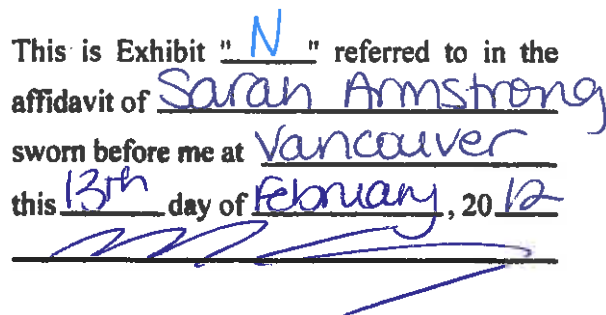 This is Exhibit "N" referred to in the
affidavit of Sarah Armstrong
sworn before me at Vancouver
this 13th day of February, 2012